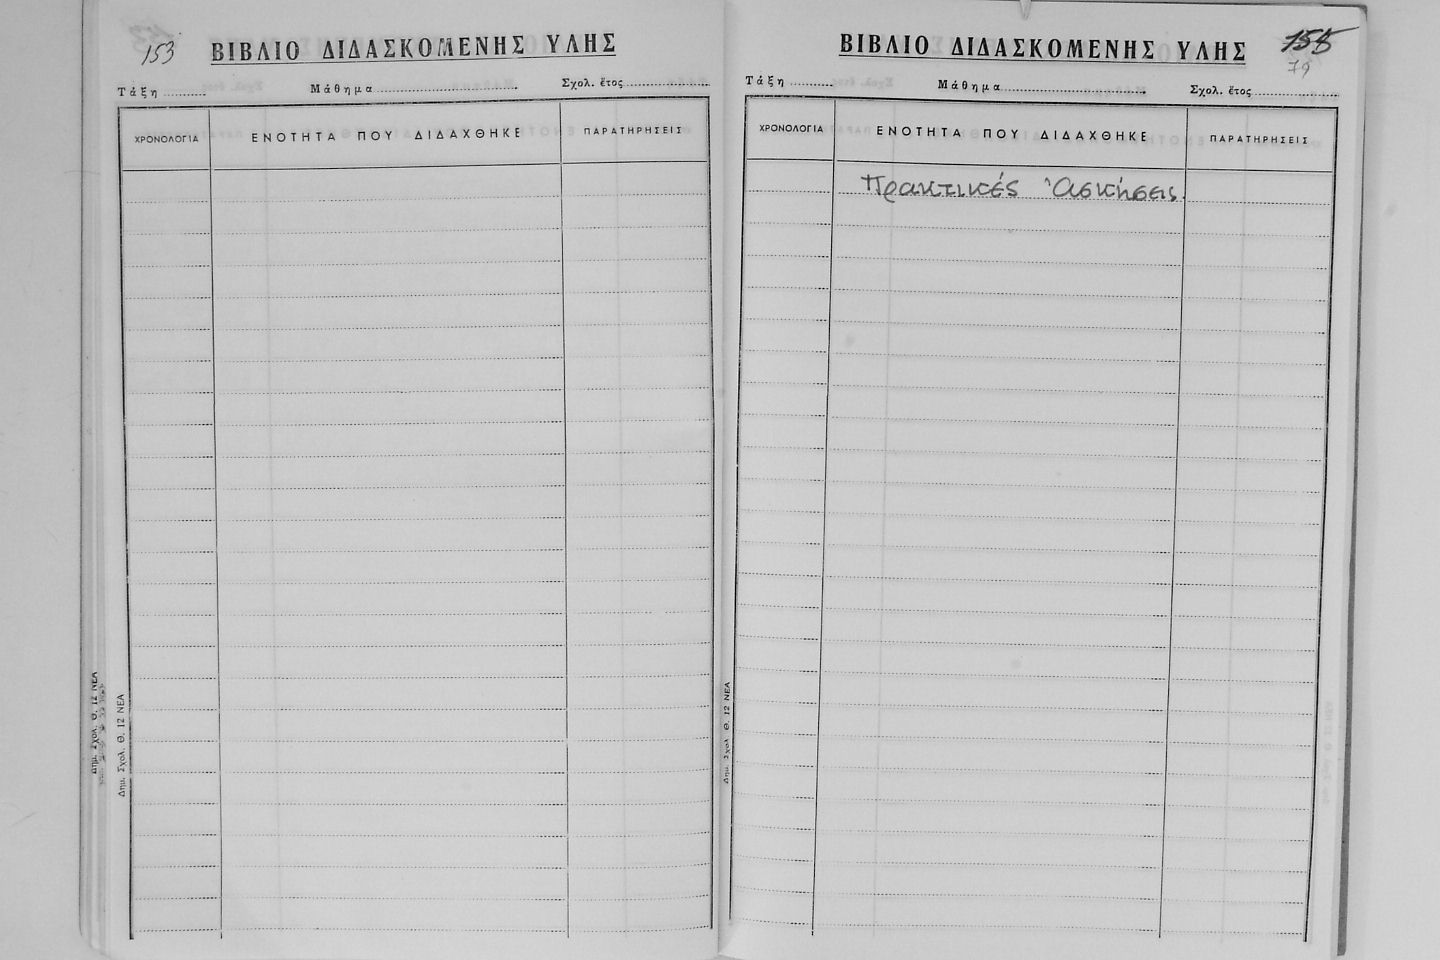 153
ΒΙΒΛΙΟ ΔΙΔΑΣΚΟΜΕΝΗΣ ΥΛΗΣ
Τάξη Μάθημα Σχολ. ἔτος
ΧΡΟΝΟΛΟΓΙΑ ΕΝΟΤΗΤΑ ΠΟΥ ΔΙΔΑΧΘΗΚΕ ΠΑΡΑΤΗΡΗΣΕΙΣ
Δημ. Σχολ. Θ. 12 ΝΕΑ
Δημ. Σχολ. Θ. 12 ΝΕΑ
155
79
ΒΙΒΛΙΟ ΔΙΔΑΣΚΟΜΕΝΗΣ ΥΛΗΣ
Τάξη Μάθημα Σχολ. ἔτος
ΧΡΟΝΟΛΟΓΙΑ ΕΝΟΤΗΤΑ ΠΟΥ ΔΙΔΑΧΘΗΚΕ ΠΑΡΑΤΗΡΗΣΕΙΣ
Πρακτικές Ἀσκήσεις.
Δημ. Σχολ. Θ. 12 ΝΕΑ